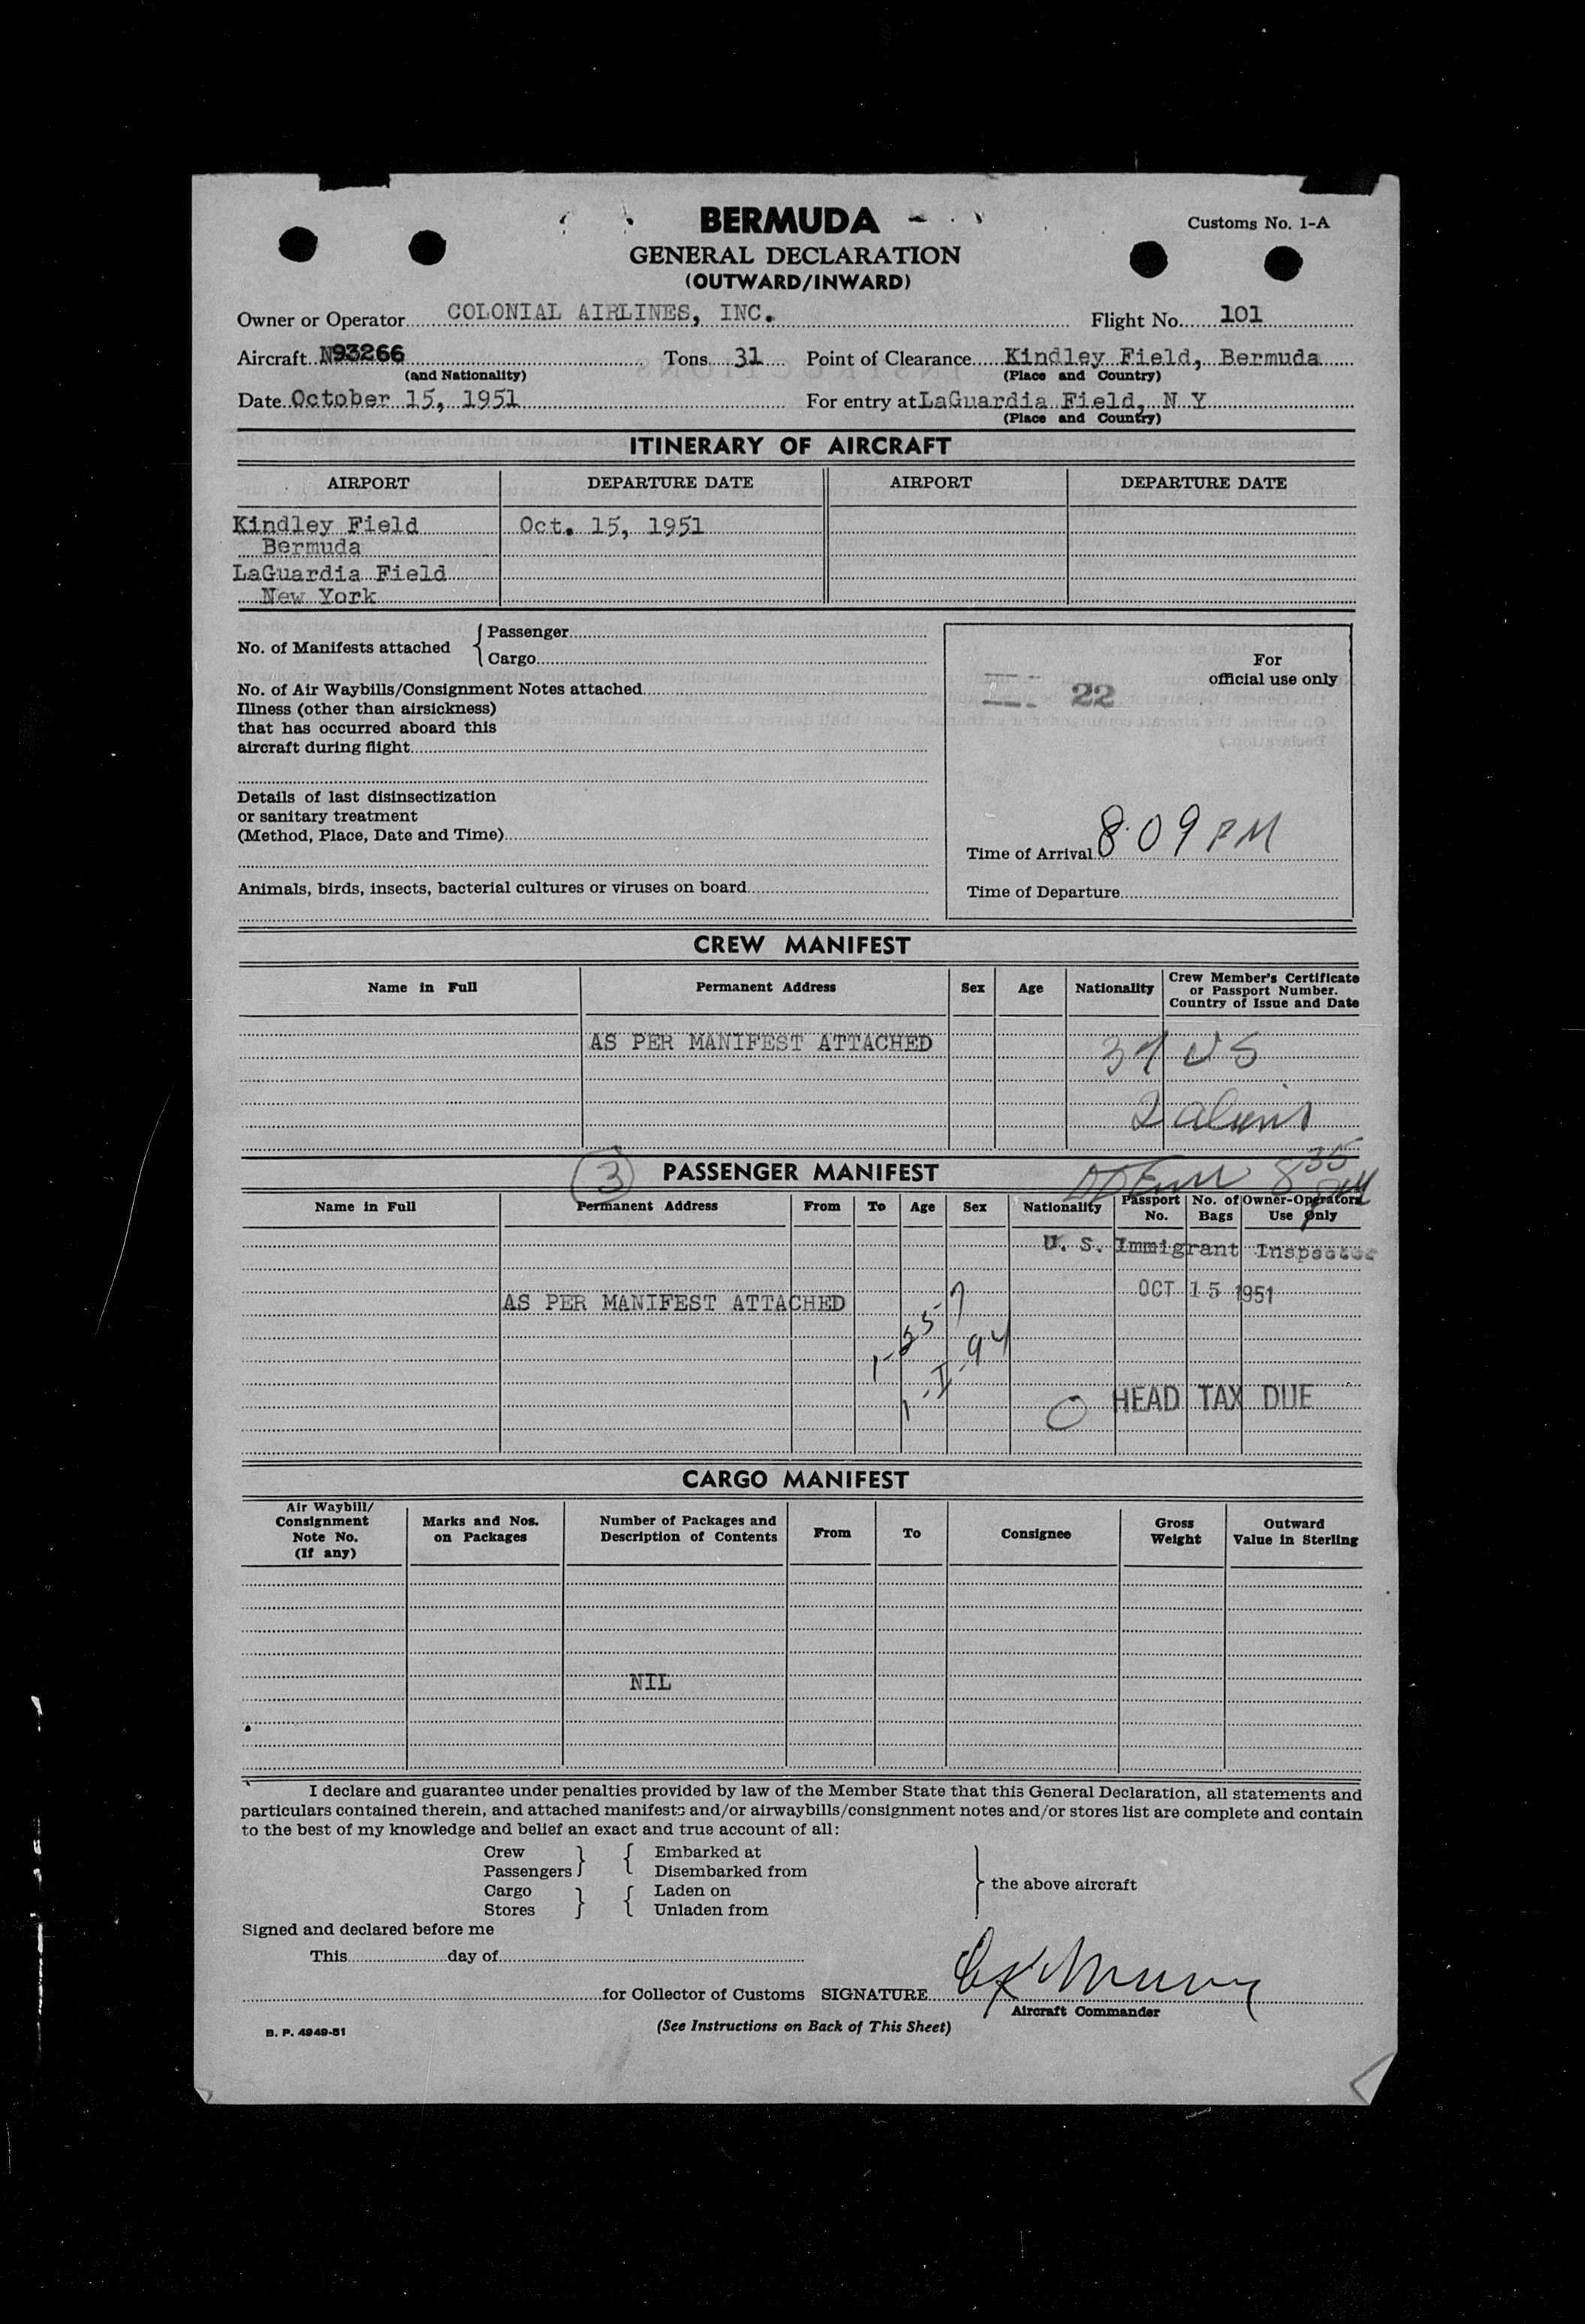 BERMUDA
Customs No. 1-A
GENERAL DECLARATION
(OUTWARD/INWARD)
Owner or Operator COLONIAL AIRLINES, INC. Flight No. 101
Aircraft N93266 Tons 31 Point of Clearance Kindley Field, Bermuda
(and Nationality) (Place and Country)
Date October 15, 1951 For entry at LaGuardia Field, N Y
(Place and Country)
ITINERARY OF AIRCRAFT
AIRPORT DEPARTURE DATE AIRPORT DEPARTURE DATE
Kindley Field Oct. 15, 1951
Bermuda
LaGuardia Field
New York
No. of Manifests attached { Passenger
Cargo
No. of Air Waybills/Consignment Notes attached
Illness (other than airsickness)
that has occurred aboard this
aircraft during flight
Details of last disinsectization
or sanitary treatment
(Method, Place, Date and Time)
Animals, birds, insects, bacterial cultures or viruses on board
For
official use only
22
Time of Arrival 8:09 PM
Time of Departure
CREW MANIFEST
Name in Full Permanent Address Sex Age Nationality Crew Member's Certificate
or Passport Number.
Country of Issue and Date
AS PER MANIFEST ATTACHED
US
2 aliens
3 PASSENGER MANIFEST
8 35 PM
Name in Full Permanent Address From To Age Sex Nationality Passport No. No. of Bags Owner-Operators Use Only
U. S. Immigrant Inspector
OCT 15 1951
AS PER MANIFEST ATTACHED
1-I-94
0 HEAD TAX DUE
CARGO MANIFEST
Air Waybill/
Consignment
Note No.
(If any)
Marks and Nos.
on Packages
Number of Packages and
Description of Contents
From To Consignee
Gross
Weight
Outward
Value in Sterling
NIL
I declare and guarantee under penalties provided by law of the Member State that this General Declaration, all statements and
particulars contained therein, and attached manifests and/or airwaybills/consignment notes and/or stores list are complete and contain
to the best of my knowledge and belief an exact and true account of all:
Crew } { Embarked at
Passengers Disembarked from
Cargo } { Laden on
Stores Unladen from
} the above aircraft
Signed and declared before me
This day of
for Collector of Customs SIGNATURE
Aircraft Commander
(See Instructions on Back of This Sheet)
B. P. 4949-51